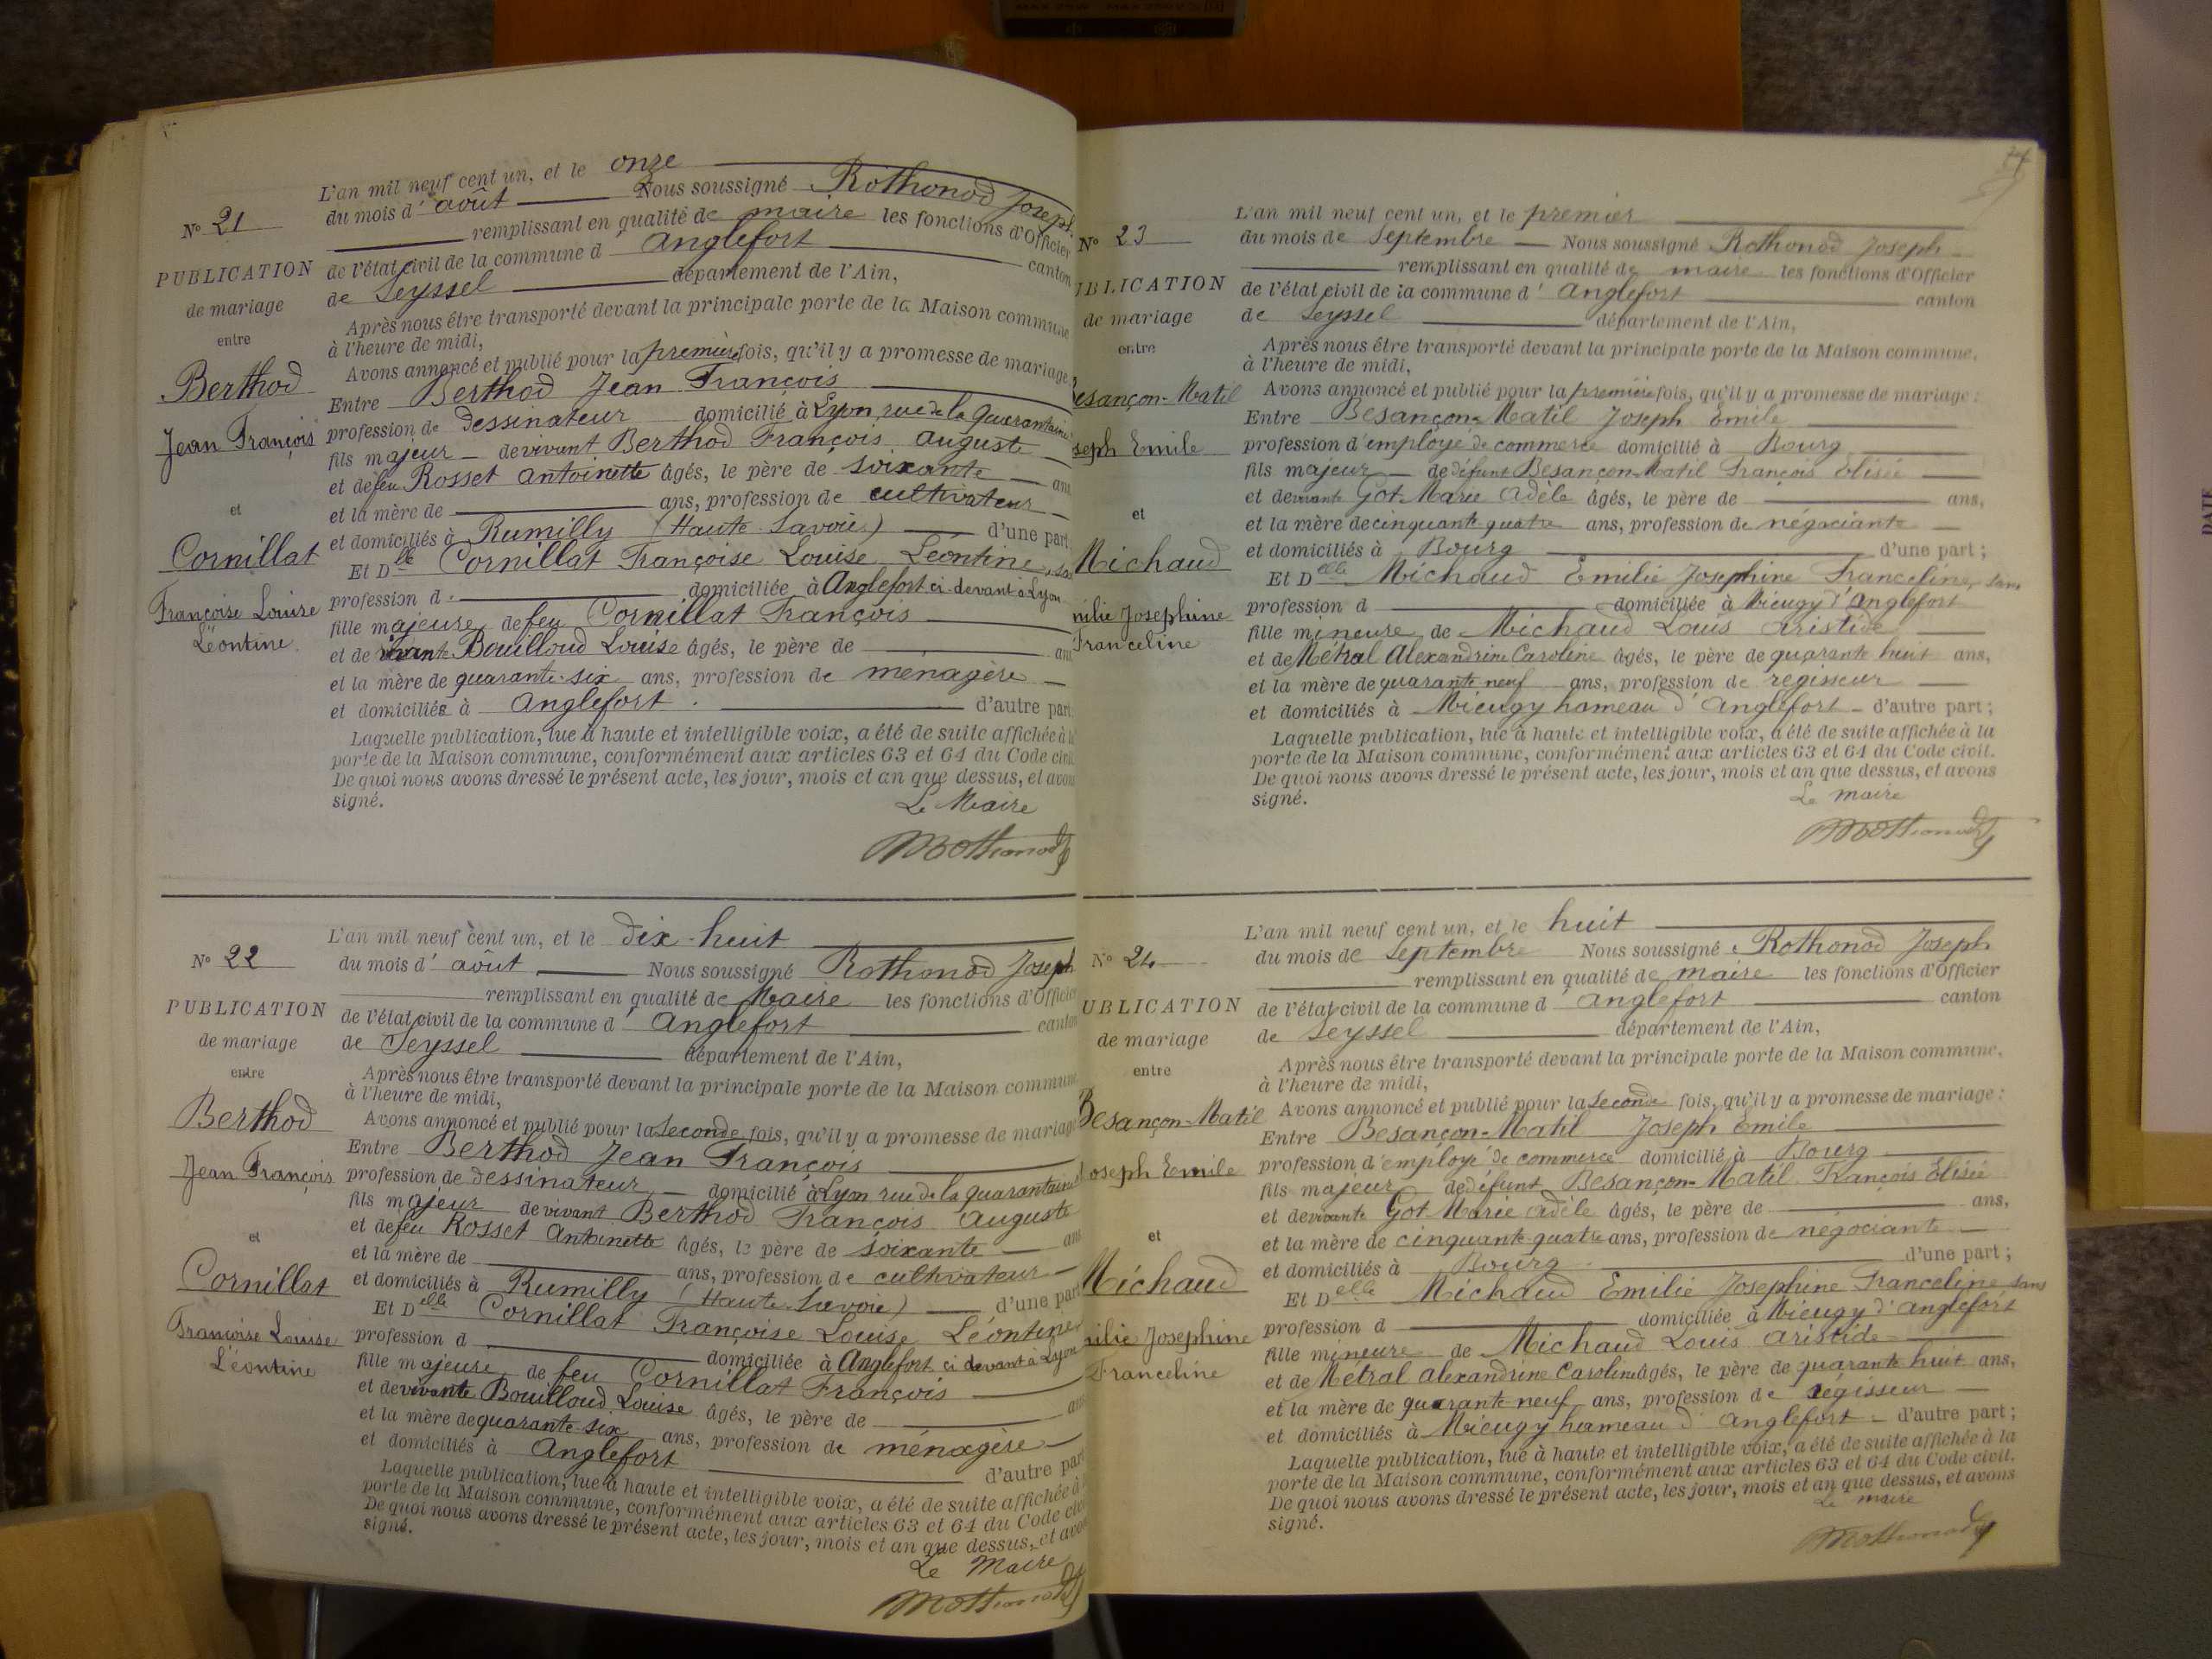 L'an mil neuf cent un, et le onze
Nº 21
du mois d' août Nous soussigné Rothonod Joseph
remplissant en qualité de maire les fonctions d'Officier
PUBLICATION
de l'état civil de la commune d' Anglefort canton
de mariage
de Seyssel département de l'Ain,
entre
Après nous être transporté devant la principale porte de la Maison commune
à l'heure de midi,
Avons annoncé et publié pour la première fois, qu'il y a promesse de mariage
Berthod
Entre Berthod Jean François
Jean François
profession de dessinateur domicilié à Lyon, rue de la quarantaine
fils majeur de vivant Berthod François Auguste
et de feu Rosset Antoinette âgés, le père de soixante ans
et
et la mère de ans, profession de cultivateur
et domiciliés à Rumilly (Haute Savoie) d'une part
Cornillat
Et Dlle Cornillat Françoise Louise Léontine, sans
Françoise Louise
profession d domiciliée à Anglefort ci-devant à Lyon
Léontine
fille majeure de feu Cornillat François
et de vivante Bouilloud Louise âgés, le père de ans
et la mère de quarante-six ans, profession de ménagère
et domiciliés à Anglefort. d'autre part
Laquelle publication, lue à haute et intelligible voix, a été de suite affichée à la
porte de la Maison commune, conformément aux articles 63 et 64 du Code civil.
De quoi nous avons dressé le présent acte, les jour, mois et an que dessus, et avons
signé.
Le Maire
Rothonod
L'an mil neuf cent un, et le dix-huit
Nº 22
du mois d' août Nous soussigné Rothonod Joseph
remplissant en qualité de Maire les fonctions d'Officier
PUBLICATION
de l'état civil de la commune d' Anglefort canton
de mariage
de Seyssel département de l'Ain,
entre
Après nous être transporté devant la principale porte de la Maison commune
à l'heure de midi,
Avons annoncé et publié pour la seconde fois, qu'il y a promesse de mariage
Berthod
Entre Berthod Jean François
Jean François
profession de dessinateur domicilié à Lyon rue de la quarantaine
fils majeur de vivant Berthod François Auguste
et de feu Rosset Antoinette âgés, le père de soixante ans
et
et la mère de ans, profession de cultivateur
et domiciliés à Rumilly (Haute-Savoie) d'une part
Cornillat
Et Delle Cornillat Françoise Louise Léontine
Françoise Louise
profession d domiciliée à Anglefort ci devant à Lyon
Léontine
fille majeure de feu Cornillat François
et de vivante Bouilloud Louise âgés, le père de ans
et la mère de quarante-six ans, profession de ménagère
et domiciliés à Anglefort d'autre part
Laquelle publication, lue à haute et intelligible voix, a été de suite affichée à
porte de la Maison commune, conformément aux articles 63 et 64 du Code civil
De quoi nous avons dressé le présent acte, les jour, mois et an que dessus, et avons
signé.
Le Maire
Rothonod
L'an mil neuf cent un, et le premier
Nº 23
du mois de Septembre Nous soussigné Rothonod Joseph
remplissant en qualité de maire les fonctions d'Officier
UBLICATION
de l'état civil de la commune d' Anglefort canton
de mariage
de Seyssel département de l'Ain,
entre
Après nous être transporté devant la principale porte de la Maison commune,
à l'heure de midi,
Avons annoncé et publié pour la première fois, qu'il y a promesse de mariage :
Besançon-Matil
Entre Besançon-Matil Joseph Emile
seph Emile
profession d'employé de commerce domicilié à Bourg
fils majeur de défunt Besançon-Matil François Elisée
et de vivante Got Marie Adèle âgés, le père de ans,
et
et la mère de cinquante-quatre ans, profession de négociante
et domiciliés à Bourg d'une part ;
Michaud
Et Delle Michaud Emilie Josephine Franceline, sans
milie Josephine
profession d domiciliée à Mieugy d'Anglefort
Franceline
fille mineure de Michaud Louis Aristide
et de Métral Alexandrine Caroline âgés, le père de quarante huit ans,
et la mère de quarante-neuf ans, profession de régisseur
et domiciliés à Mieugy hameau d'Anglefort d'autre part ;
Laquelle publication, lue à haute et intelligible voix, a été de suite affichée à la
porte de la Maison commune, conformément aux articles 63 et 64 du Code civil.
De quoi nous avons dressé le présent acte, les jour, mois et an que dessus, et avons
signé.
Le maire
Rothonod
L'an mil neuf cent un, et le huit
Nº 24
du mois de Septembre Nous soussigné Rothonod Joseph
remplissant en qualité de maire les fonctions d'Officier
UBLICATION
de l'état civil de la commune d' Anglefort canton
de mariage
de Seyssel département de l'Ain,
entre
Après nous être transporté devant la principale porte de la Maison commune,
à l'heure de midi,
Avons annoncé et publié pour la seconde fois, qu'il y a promesse de mariage :
Besançon-Matil
Entre Besançon-Matil Joseph Emile
Joseph Emile
profession d'employé de commerce domicilié à Bourg
fils majeur de défunt Besançon-Matil François Elisée
et de vivante Got Marie Adèle âgés, le père de ans,
et
et la mère de cinquante-quatre ans, profession de négociante
et domiciliés à Bourg d'une part ;
Michaud
Et Delle Michaud Emilie Josephine Franceline sans
milie Josephine
profession d domiciliée à Mieugy d'Anglefort
Franceline
fille mineure de Michaud Louis Aristide
et de Métral Alexandrine Caroline âgés, le père de quarante huit ans,
et la mère de quarante-neuf ans, profession de régisseur
et domiciliés à Mieugy hameau d'Anglefort d'autre part ;
Laquelle publication, lue à haute et intelligible voix, a été de suite affichée à la
porte de la Maison commune, conformément aux articles 63 et 64 du Code civil.
De quoi nous avons dressé le présent acte, les jour, mois et an que dessus, et avons
signé.
Le maire
Rothonod
DATE